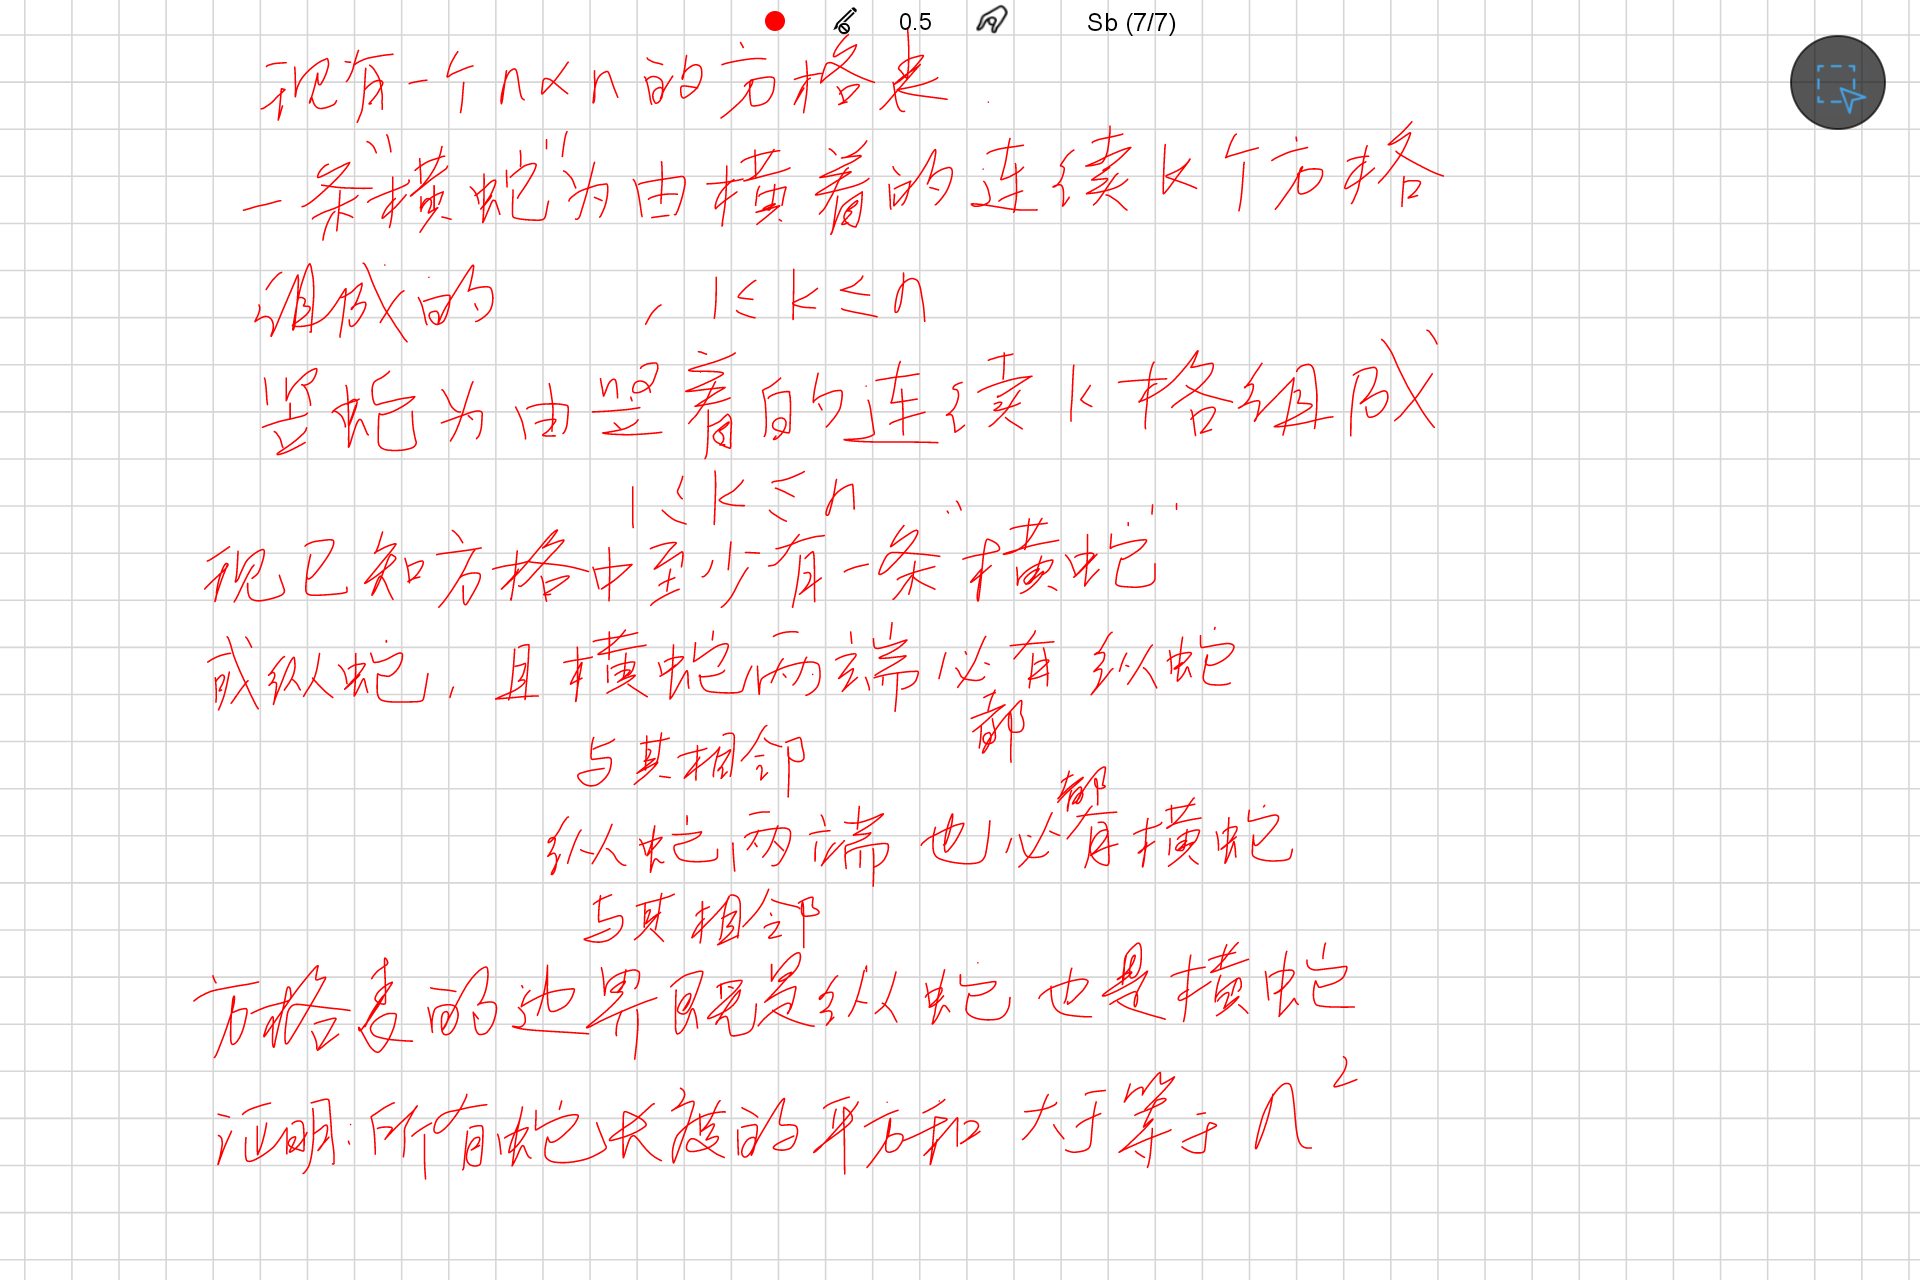 0.5 Sb (7/7)
现有一个n×n的方格表.
一条"横蛇"为由横着的连续k个方格
组成的 , 1≤k≤n
竖蛇为由竖着的连续k格组成
1≤k≤n
现已知方格中至少有一条"横蛇"
或纵蛇,且横蛇两端必都有纵蛇
与其相邻
纵蛇两端也必都有横蛇
与其相邻
方格表的边界既是纵蛇也是横蛇
证明:所有蛇长度的平方和大于等于n²